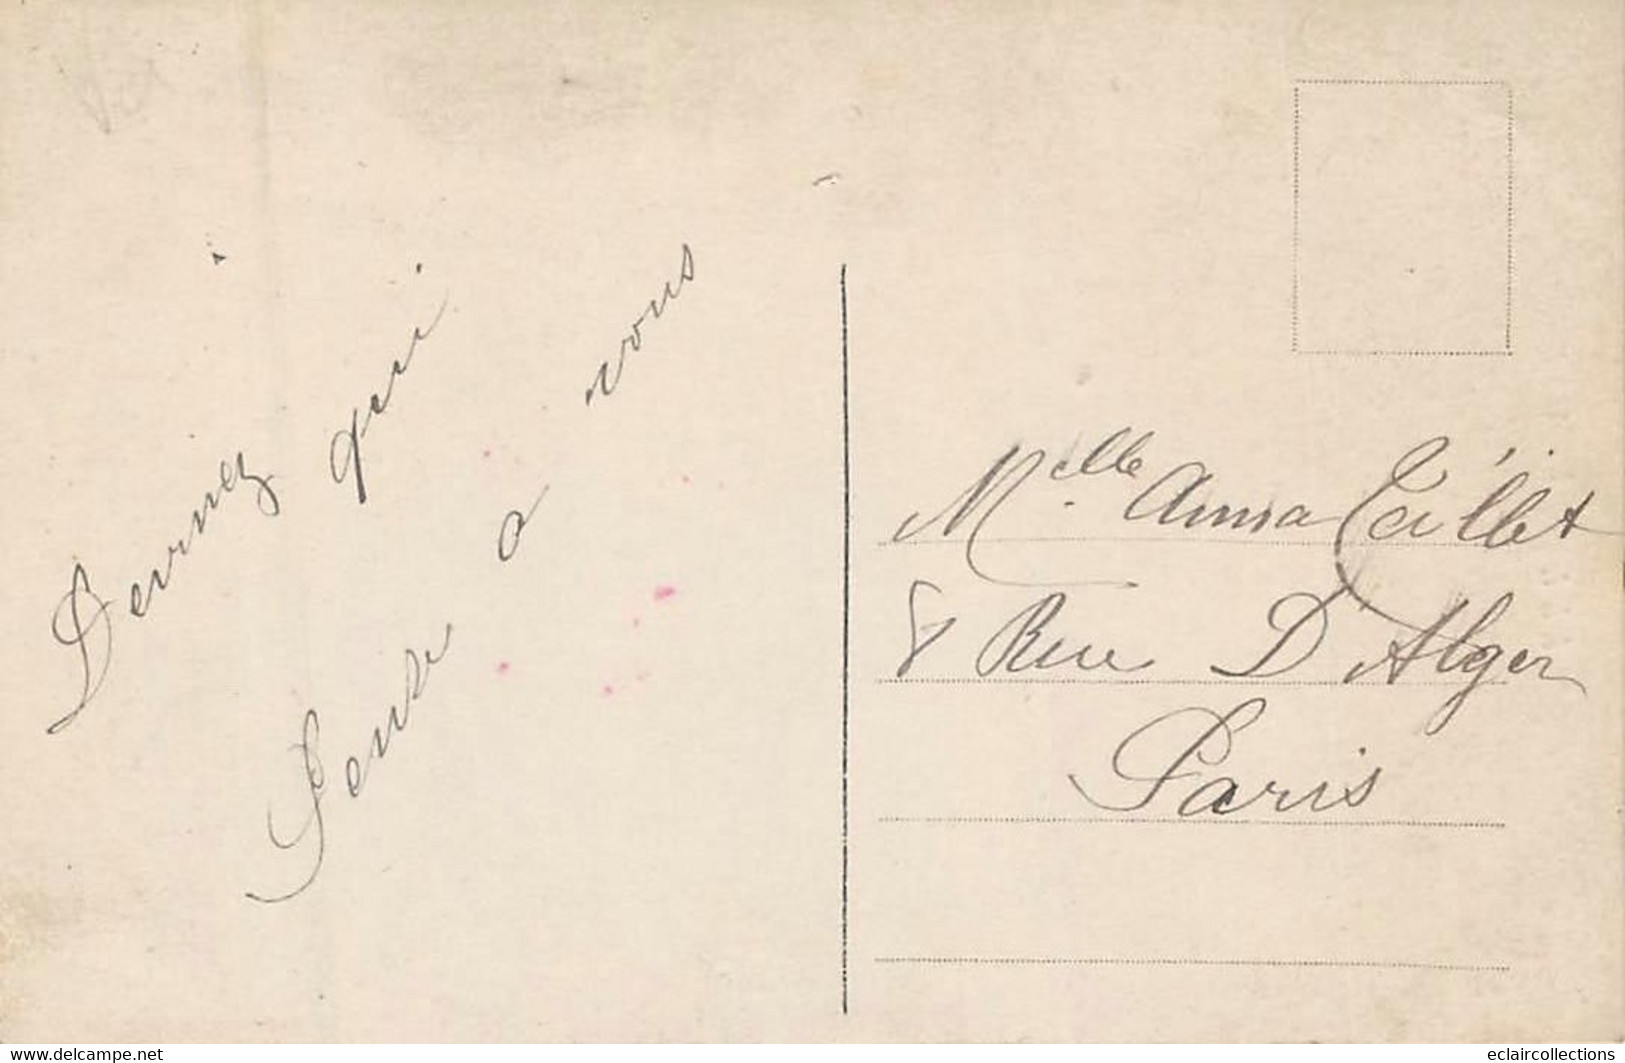 Devinez qui
Pense a vous
Melle Anna Caillet
8 Rue D'Alger
Paris
www.delcampe.net
eclaircollections